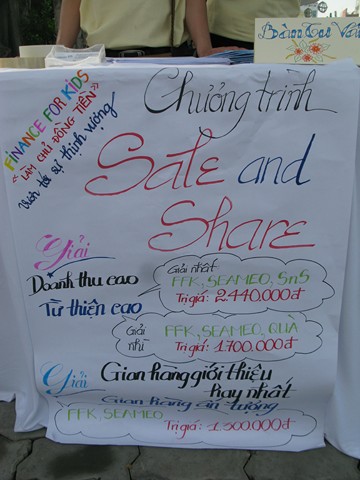 Bàn Tac Vai
FINANCE FOR KIDS
"LÀM CHỦ ĐỒNG TIỀN"
Vươn tới sự thịnh vượng
Chương trình
Sale and
Share
Giải
Doanh thu cao
Từ thiện cao
Giải nhất
FFK, SEAMEO, SnS
Trị giá: 2.440.000đ
Giải
nhì
FFK, SEAMEO, QUÀ
Trị giá: 1.700.000đ
Giải
Gian hàng giới thiệu
hay nhất
Gian hàng ấn tượng
FFK, SEAMEO
Trị giá: 1.300.000đ